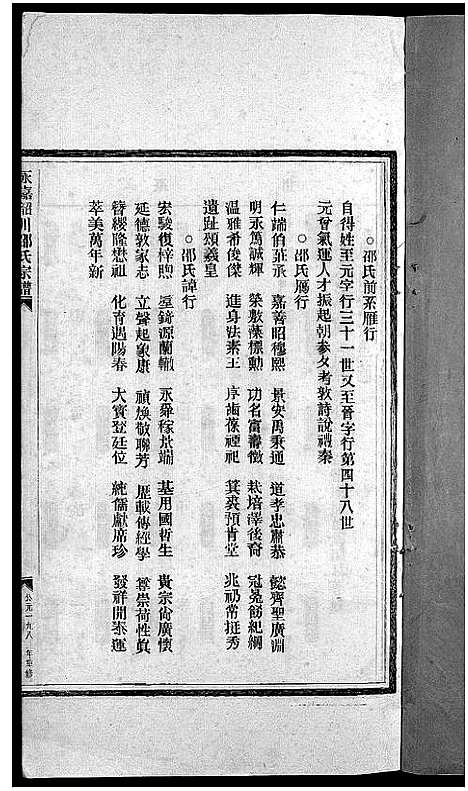 ○邵氏前系雁行
自得姓至元字行三十一世又至晉字行第四十八世
元會氣運人才振起朝參夕考敦詩說禮秦
○邵氏雁行
仁端伯莊承 嘉善昭穆熙 景安禹秉通 道孝忠肅恭 懿齊聖廣淵
明永篤誠輝 榮敷藻標勳 功名富壽徵 栽培澤後裔 冠冕飭紀綱
溫雅希俊傑 進身法素王 序齒葆禋祀 箕裘預肯堂 兆礽常挺秀
遺趾頌義皇
○邵氏諱行
宏駿復梓煦 壐錡源蘭轍 永舜稼炗端 基用國哲生 貴宗尙廣懷
延德敦家志 立聲起象康 禎煥敬聯芳 歷載傳經學 尊崇荷性眞
簪纓隆懋祖 化育遇陽春 大寶登廷位 純儒獻席珍 發祥開泰運
萃美萬年新
永嘉韶川邵氏宗譜
公元一九八 年重修